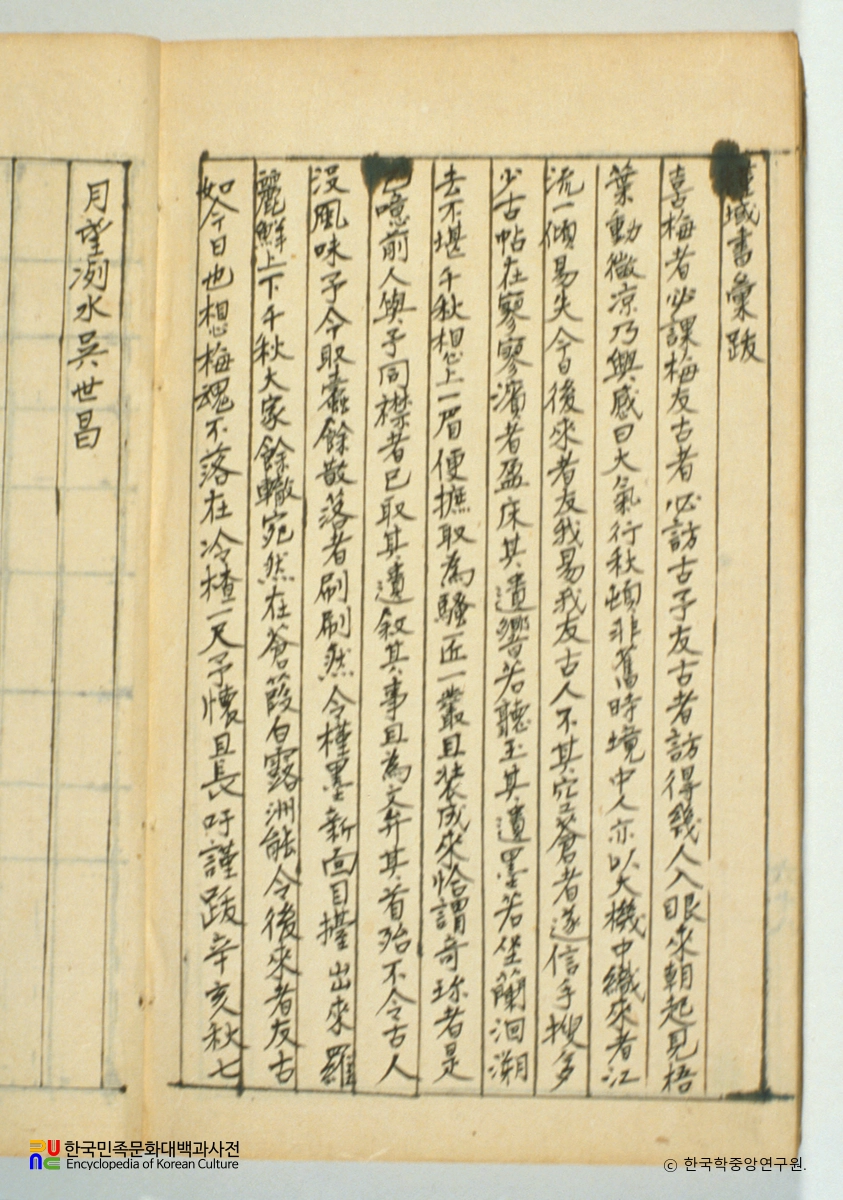 槿域書彙跋
喜梅者必課梅友古者必訪古予友古者訪得幾人入眼來朝起見梧
葉動微凉乃興感曰大氣行秋頓非舊時境中人亦以大機中織來者江
流一傾易失今日後來者友我易我友古人不其穴蒼者遂信手搜多
少古帖在寥寥濱者盈床其遺響若聽玉其遺墨若坐蘭洄溯
去不堪千秋想上一眉便摭取為騷匠一叢且裝成來恰謂奇珎者是
噫前人與予同襟者已取其遺叙其事且為文弁其首殆不令古人
沒風味予今取蠹餘散落者刷刷然令槿墨新面目擡出來羅
麗鮮上下千秋大家餘轍宛然在蒼葭白露洲能令後來者友古
如今日也想梅魂不落在冷楂一尺予懷且長吁謹跋辛亥秋七
月望冽水吳世昌
한국민족문화대백과사전
Encyclopedia of Korean Culture
ⓒ 한국학중앙연구원.